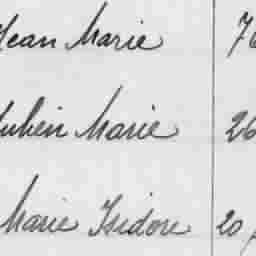 Jean Marie 76
Marie 26
Marie Isidore 20